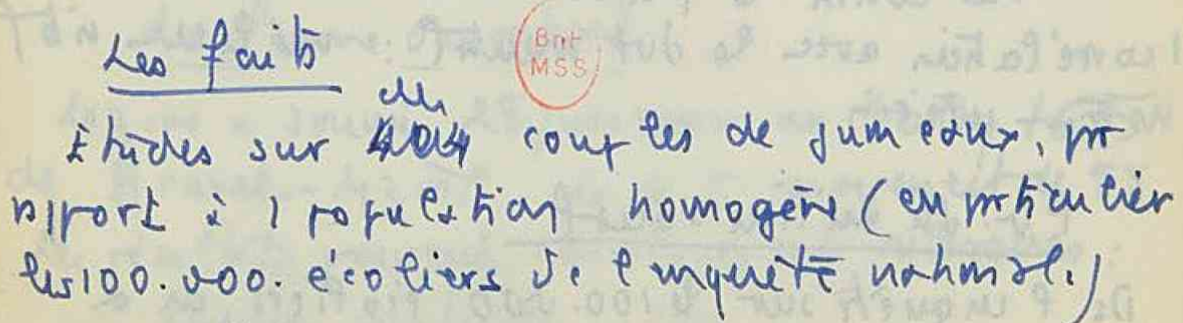 Les faits
BnF
MSS
des
Etudes sur couples de jumeaux, pr
rpport à 1 population homogène (en prticulier
les 100.000. écoliers de l'enquête nationale.)